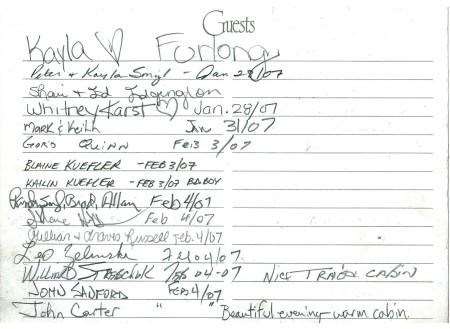 Guests
Kayla Furlong
Peter & Kayla Smyl - Jan 28/07
Shari & Ed Edgington
Whitney Karst Jan. 28/07
Mark & Keith Jan 31/07
Gord Quinn Feb 3/07
Blaine Kuefler - Feb 3/07
Kailin Kuefler - Feb 3/07 
Brad, Allan Feb 4/07
Shane Feb 4/07
Gillian & Travis Russell Feb. 4/07
Leo Zelinski Feb 04/07.
Feb 04-07 Nice Cabin
John Sadford Feb 4/07
John Carter " " Beautiful evening - warm cabin.